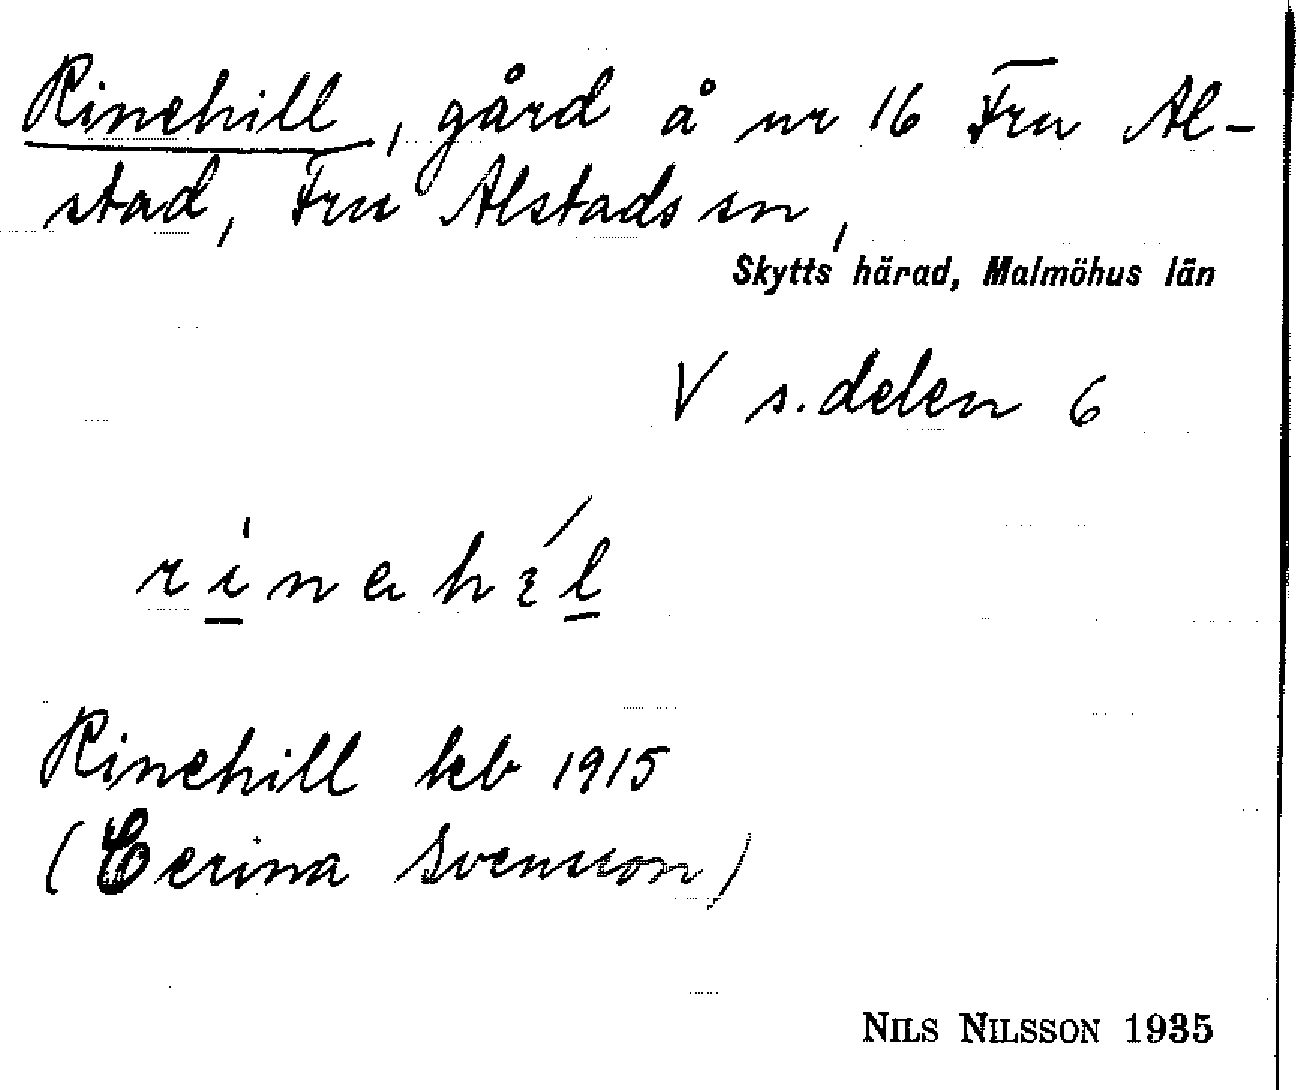 Rinehill, gård å nr 16 Fru Al-
stad, Fru Alstads sn,
Skytts härad, Malmöhus län
V s.delen 6
rinehil
Rinehill kb 1915
(Cerina Svensson)
NILS NILSSON 1935